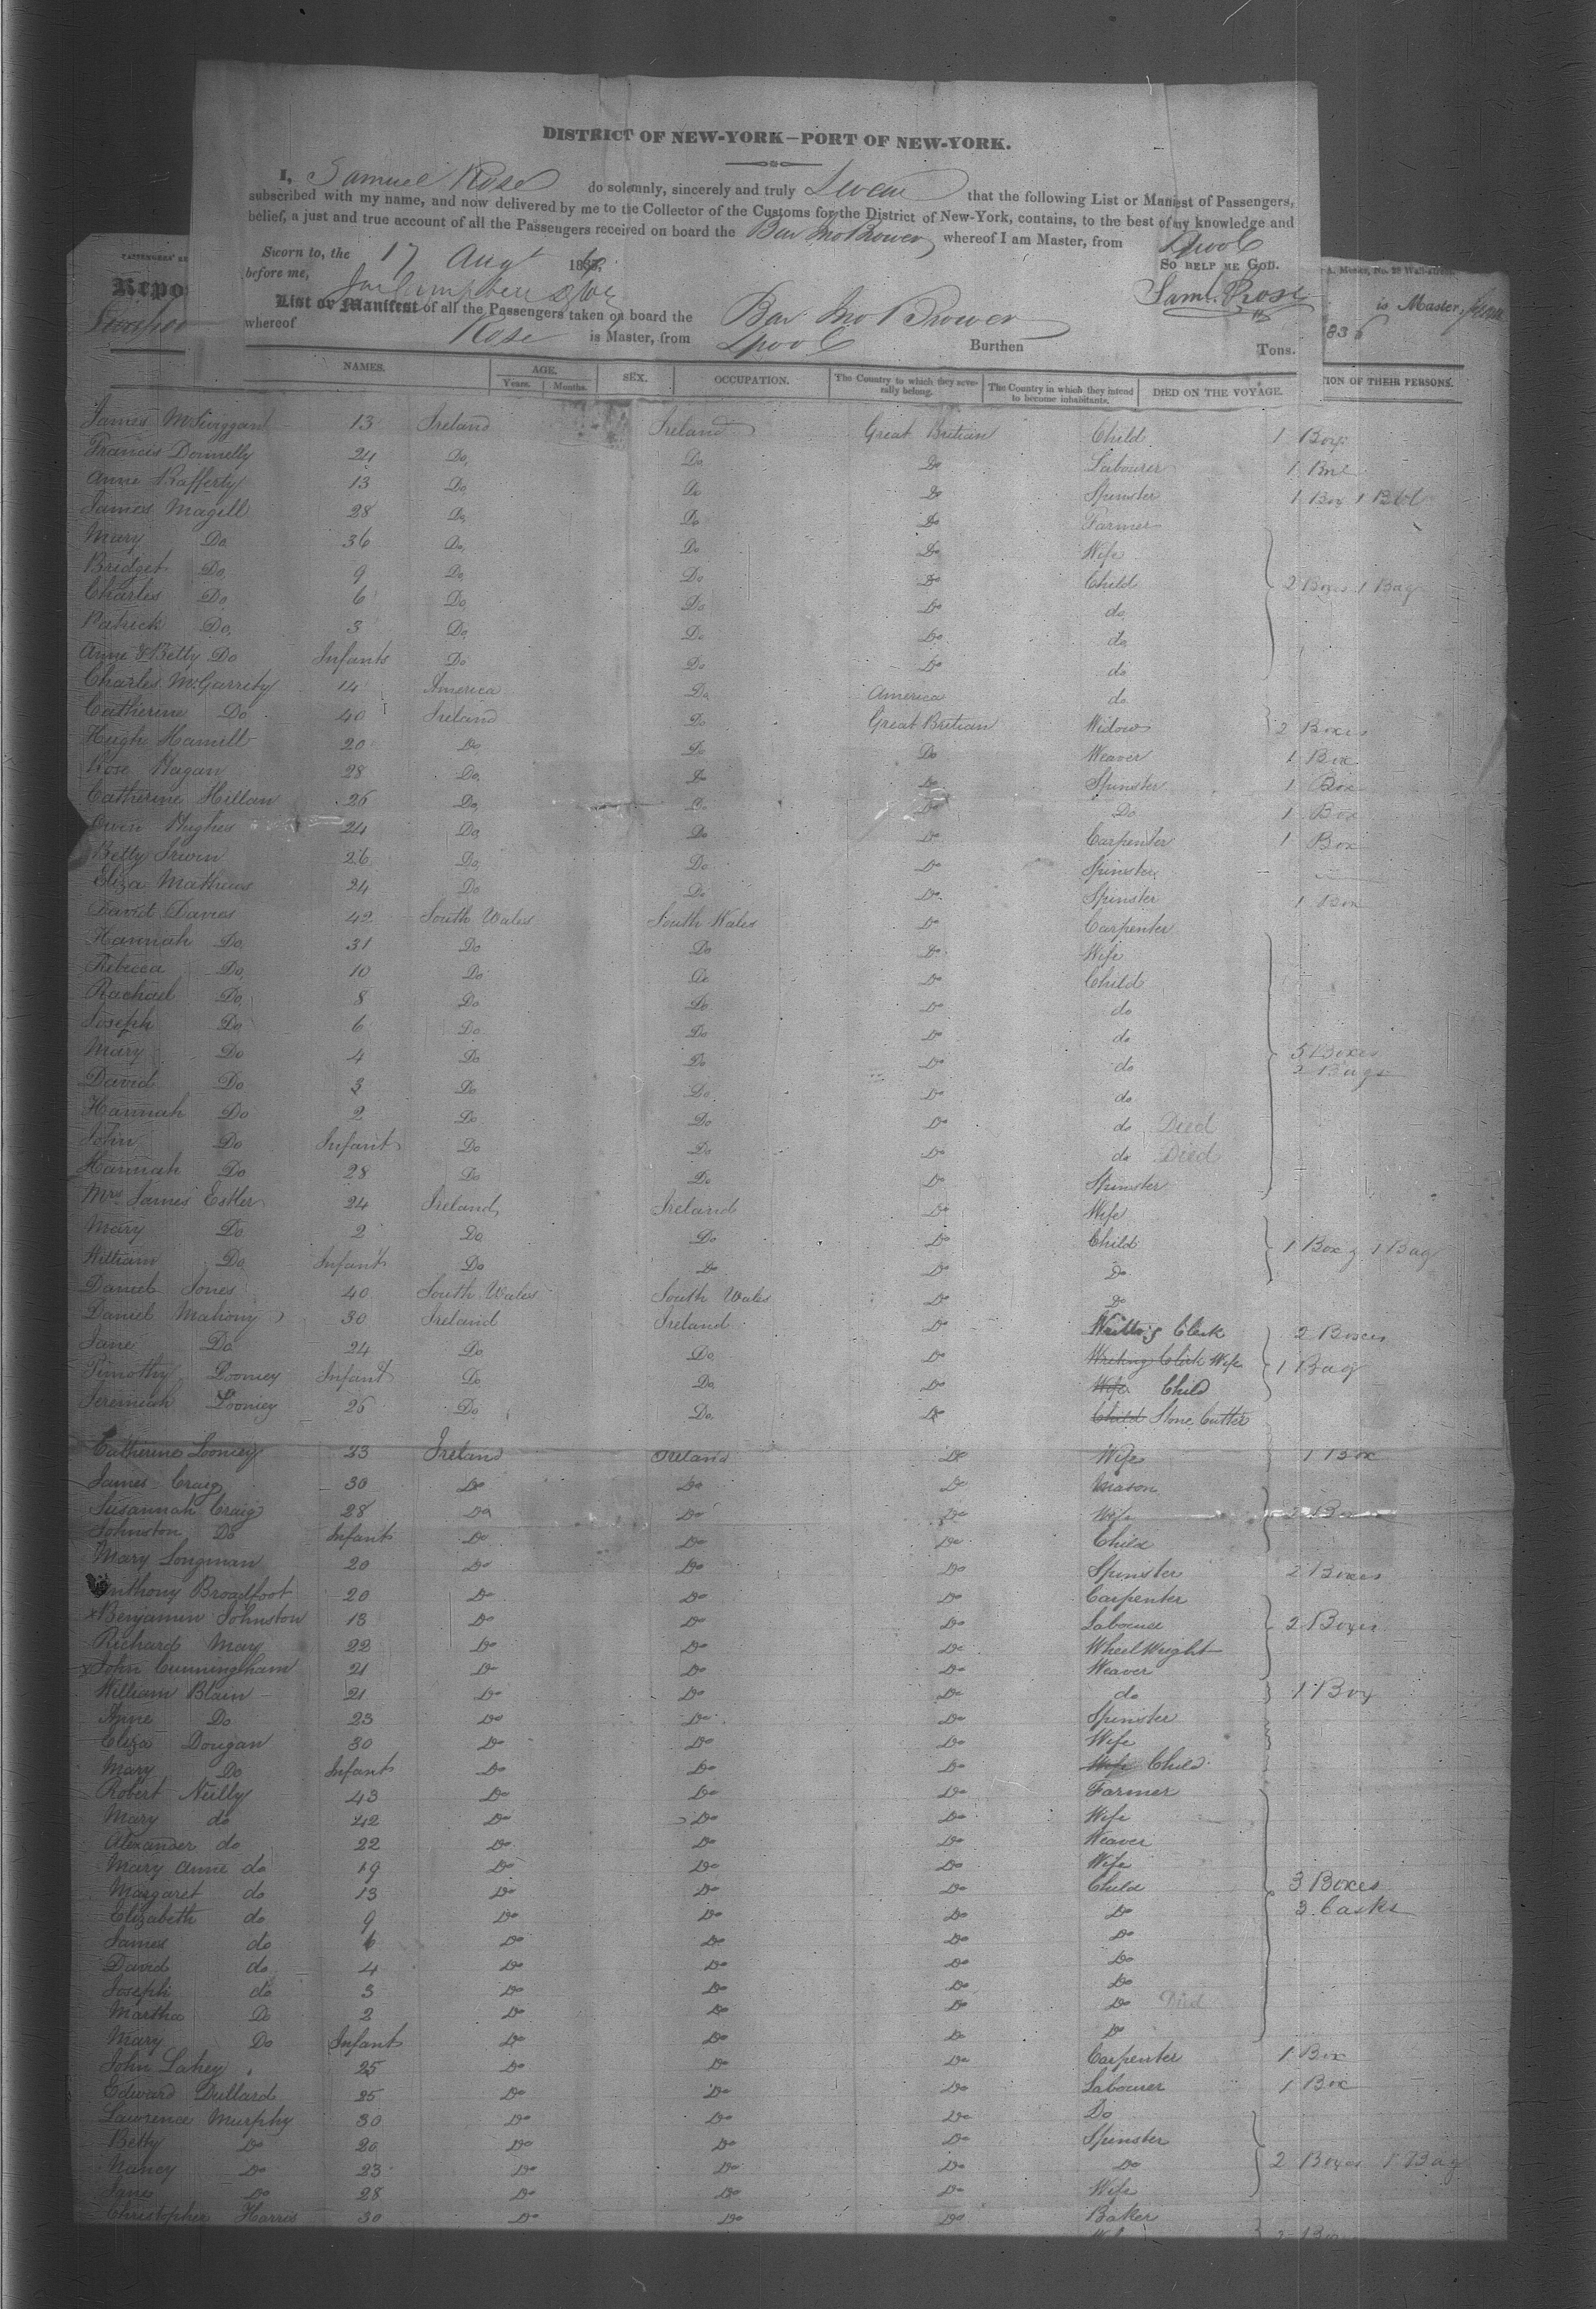 DISTRICT OF NEW-YORK—PORT OF NEW-YORK.
I, Samuel Rose do solemnly, sincerely and truly Swear that the following List or Manifest of Passengers,
subscribed with my name, and now delivered by me to the Collector of the Customs for the District of New-York, contains, to the best of my knowledge and
belief, a just and true account of all the Passengers received on board the Bar Jno Brower whereof I am Master, from Lpool
Sworn to, the 17 Augt 183 So help me God.
before me, Saml. Rose
List or Manifest of all the Passengers taken on board the Bar Jno Brower
whereof Rose is Master, from Lpool Burthen Tons.
PASSENGERS'
Repo
No. 28 Wall-street.
is Master, from
836
NAMES. AGE. Years. Months. SEX. OCCUPATION. The Country to which they severally belong. The Country in which they intend to become inhabitants. DIED ON THE VOYAGE. TION OF THEIR PERSONS.
James 13 Ireland Ireland Great Britian Child 1 Box
Francis Donnelly 24 Do Do Do Labourer 1
Anne Rafferty 13 Do Do Do Spinster 1 Box 1 Bbl
James Magill 28 Do Do Do Farmer
Mary Do 36 Do Do Do Wife
Bridget Do 9 Do Do Do Child 2 Boxes 1 Bag
Charles Do 6 Do Do Do do
Patrick Do 3 Do Do Do do
Anne & Betty Do Infants Do Do Do do
Charles McGarrety 14 America Do America do
Catherine Do 40 Ireland Do Great Britian Widow 2 Boxes
Hugh Hamill 20 Do Do Do Weaver 1 Box
Rose Hagan 28 Do Do Do Spinster 1 Box
Catherine Hillan 26 Do Do Do Do 1 Box
Owen Hughes 24 Do Do Do Carpenter 1 Box
Betty Irwin 26 Do Do Do Spinster
Eliza Mathews 24 Do Do Do Spinster 1 Box
David Davies 42 South Wales South Wales Do Carpenter
Hannah Do 31 Do Do Do Wife
Rebecca Do 10 Do Do Do Child
Rachael Do 8 Do Do Do do
Joseph Do 6 Do Do Do do
Mary Do 4 Do Do Do do 5 Boxes 2 Bags
David Do 3 Do Do Do do
Hannah Do 2 Do Do Do do Died
John Do Infant Do Do Do do Died
Hannah Do 28 Do Do Do Spinster
Mrs James Esller 24 Ireland Ireland Do Wife
Mary Do 2 Do Do Do Child 1 Box 1 Bag
William Do Infant Do Do Do Do
Daniel Jones 40 South Wales South Wales Do Do
Daniel Mahony 30 Ireland Ireland Do Writing Clerk 2 Boxes
Jane Do 24 Do Do Do Writing Clerk Wife 1 Bag
Timothy Looney Infant Do Do Do Wife Child
Jeremiah Looney 26 Do Do Do Child Stone Cutter
Catherine Looney 23 Ireland Ireland Do Wife 1 Box
James Craig 30 Do Do Do Mason
Susannah Craig 28 Do Do Do Wife 2
Johnston Do Infant Do Do Do Child
Mary Longman 20 Do Do Do Spinster 2 Boxes
Anthony Broadfoot 20 Do Do Do Carpenter
Benjamin Johnston 13 Do Do Do Labourer 2 Boxes
Richard May 22 Do Do Do Wheel Wright
John Cunningham 21 Do Do Do Weaver
William Blain 21 Do Do Do do 1 Box
Anne Do 23 Do Do Do Spinster
Eliza Dougan 30 Do Do Do Wife
Mary Do Infant Do Do Do Wife Child
Robert Neilly 43 Do Do Do Farmer
Mary do 42 Do Do Do Wife
Alexander do 22 Do Do Do Weaver
Mary Anne do 19 Do Do Do Wife
Margaret do 13 Do Do Do Child 3 Boxes
Elizabeth do 9 Do Do Do Do 3 Casks
James do 6 Do Do Do Do
David do 4 Do Do Do Do
Joseph do 3 Do Do Do Do
Martha Do 2 Do Do Do Do Died
Mary Do Infant Do Do Do Do
John Lahey 25 Do Do Do Carpenter 1 Box
Edward Dullard 25 Do Do Do Labourer 1 Box
Lawrence Murphy 30 Do Do Do Do
Betty Do 20 Do Do Do Spinster
Nancy Do 23 Do Do Do Do 2 Boxes 1 Bag
Jane Do 28 Do Do Do Wife
Christopher Harris 30 Do Do Do Baker